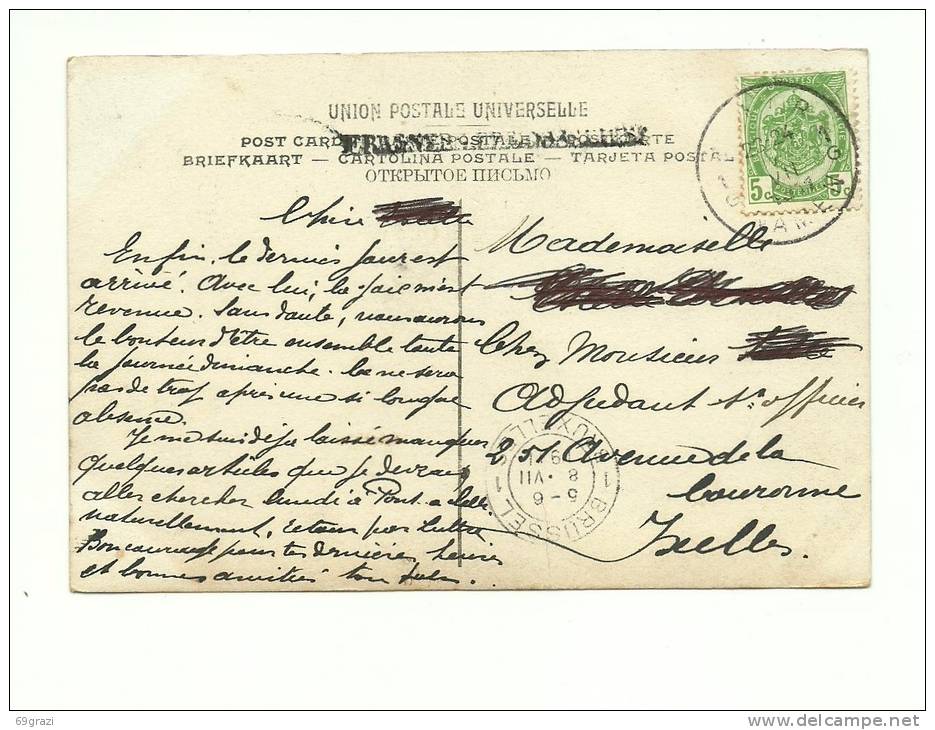 UNION POSTALE UNIVERSELLE
POST CARD
BRIEFKAART — CARTOLINA POSTALE — TARJETA POSTAL
ОТКРЫТОЕ ПИСЬМО
Chère
Enfin, le dernier jour est
arrivé. Avec lui, la joie m'est
revenue. Sans doute, nous aurons
le bonheur d'être ensemble toute
la journée dimanche. Ce ne sera
pas de trop après une si longue
absence.
Je me suis déjà laissé manquer
quelques articles que je devrais
aller chercher lundi à Pont-a-Celles
naturellement, retour par Luttre
Bon courage pour tes dernières heures
et bonnes amitiés ton
Mademoiselle
Chez Monsieur
Adjudant Ss officier
251 Avenue de la
Couronne
Ixelles.
5c 5c
BRUSSEL 1 BRUXELLES 1
5-6
8 VII
69grazi
delcampe.net